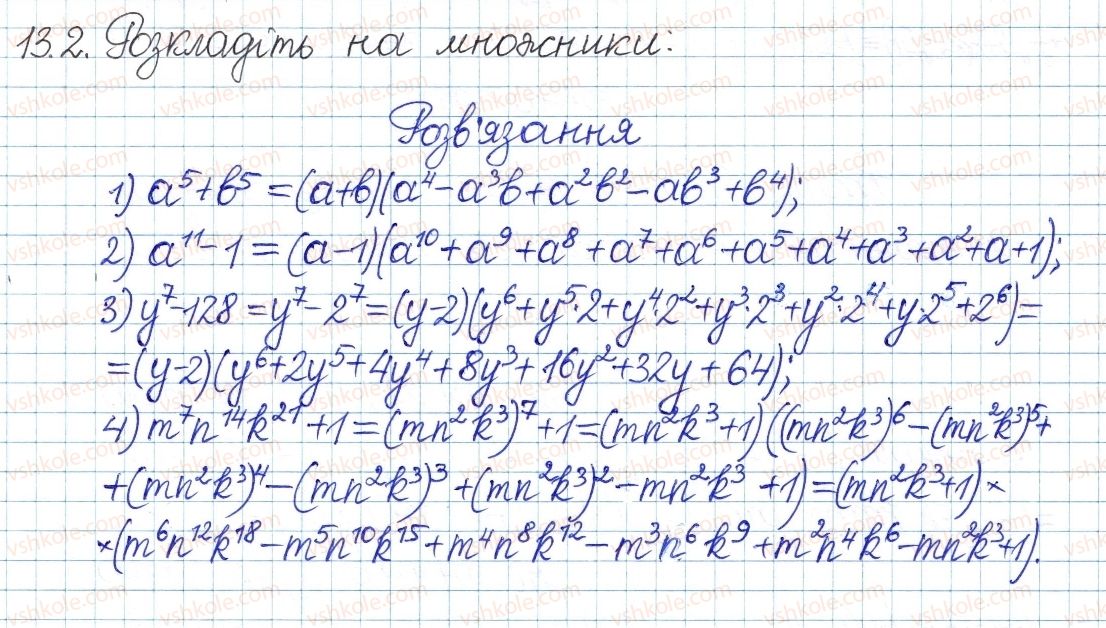 13.2. Розкладіть на множники:
Розв'язання
1) a⁵+b⁵=(a+b)(a⁴-a³b+a²b²-ab³+b⁴);
2) a¹¹-1=(a-1)(a¹⁰+a⁹+a⁸+a⁷+a⁶+a⁵+a⁴+a³+a²+a+1);
3) y⁷-128=y⁷-2⁷=(y-2)(y⁶+y⁵·2+y⁴·2²+y³·2³+y²·2⁴+y·2⁵+2⁶)=
=(y-2)(y⁶+2y⁵+4y⁴+8y³+16y²+32y+64);
4) m⁷n¹⁴k²¹+1=(mn²k³)⁷+1=(mn²k³+1)((mn²k³)⁶-(mn²k³)⁵+
+(mn²k³)⁴-(mn²k³)³+(mn²k³)²-mn²k³+1)=(mn²k³+1)×
×(m⁶n¹²k¹⁸-m⁵n¹⁰k¹⁵+m⁴n⁸k¹²-m³n⁶k⁹+m²n⁴k⁶-mn²k³+1).
vshkole.com